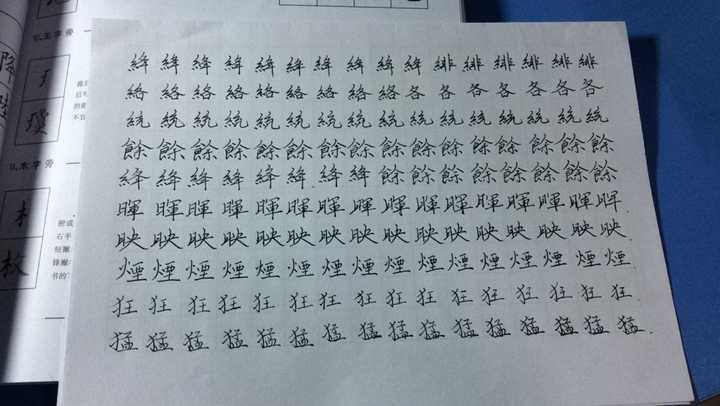 絳絳絳絳絳絳絳絳絳絳緋緋緋緋緋緋
絡絡絡絡絡絡絡絡絡各各各各各各各
統統統統統統統統統統統統統統統統
餘餘餘餘餘餘餘餘餘餘餘餘餘餘餘餘
絳絳絳絳絳絳絳絳餘餘餘餘餘餘餘餘
暉暉暉暉暉暉暉暉暉暉暉暉暉暉暉暉
映映映映映映映映映映映映映映映映
煙煙煙煙煙煙煙煙煙煙煙煙煙煙煙煙
狂狂狂狂狂狂狂狂狂狂狂狂狂狂狂狂
猛猛猛猛猛猛猛猛猛猛猛猛猛猛猛猛
王字旁
木字旁
枚